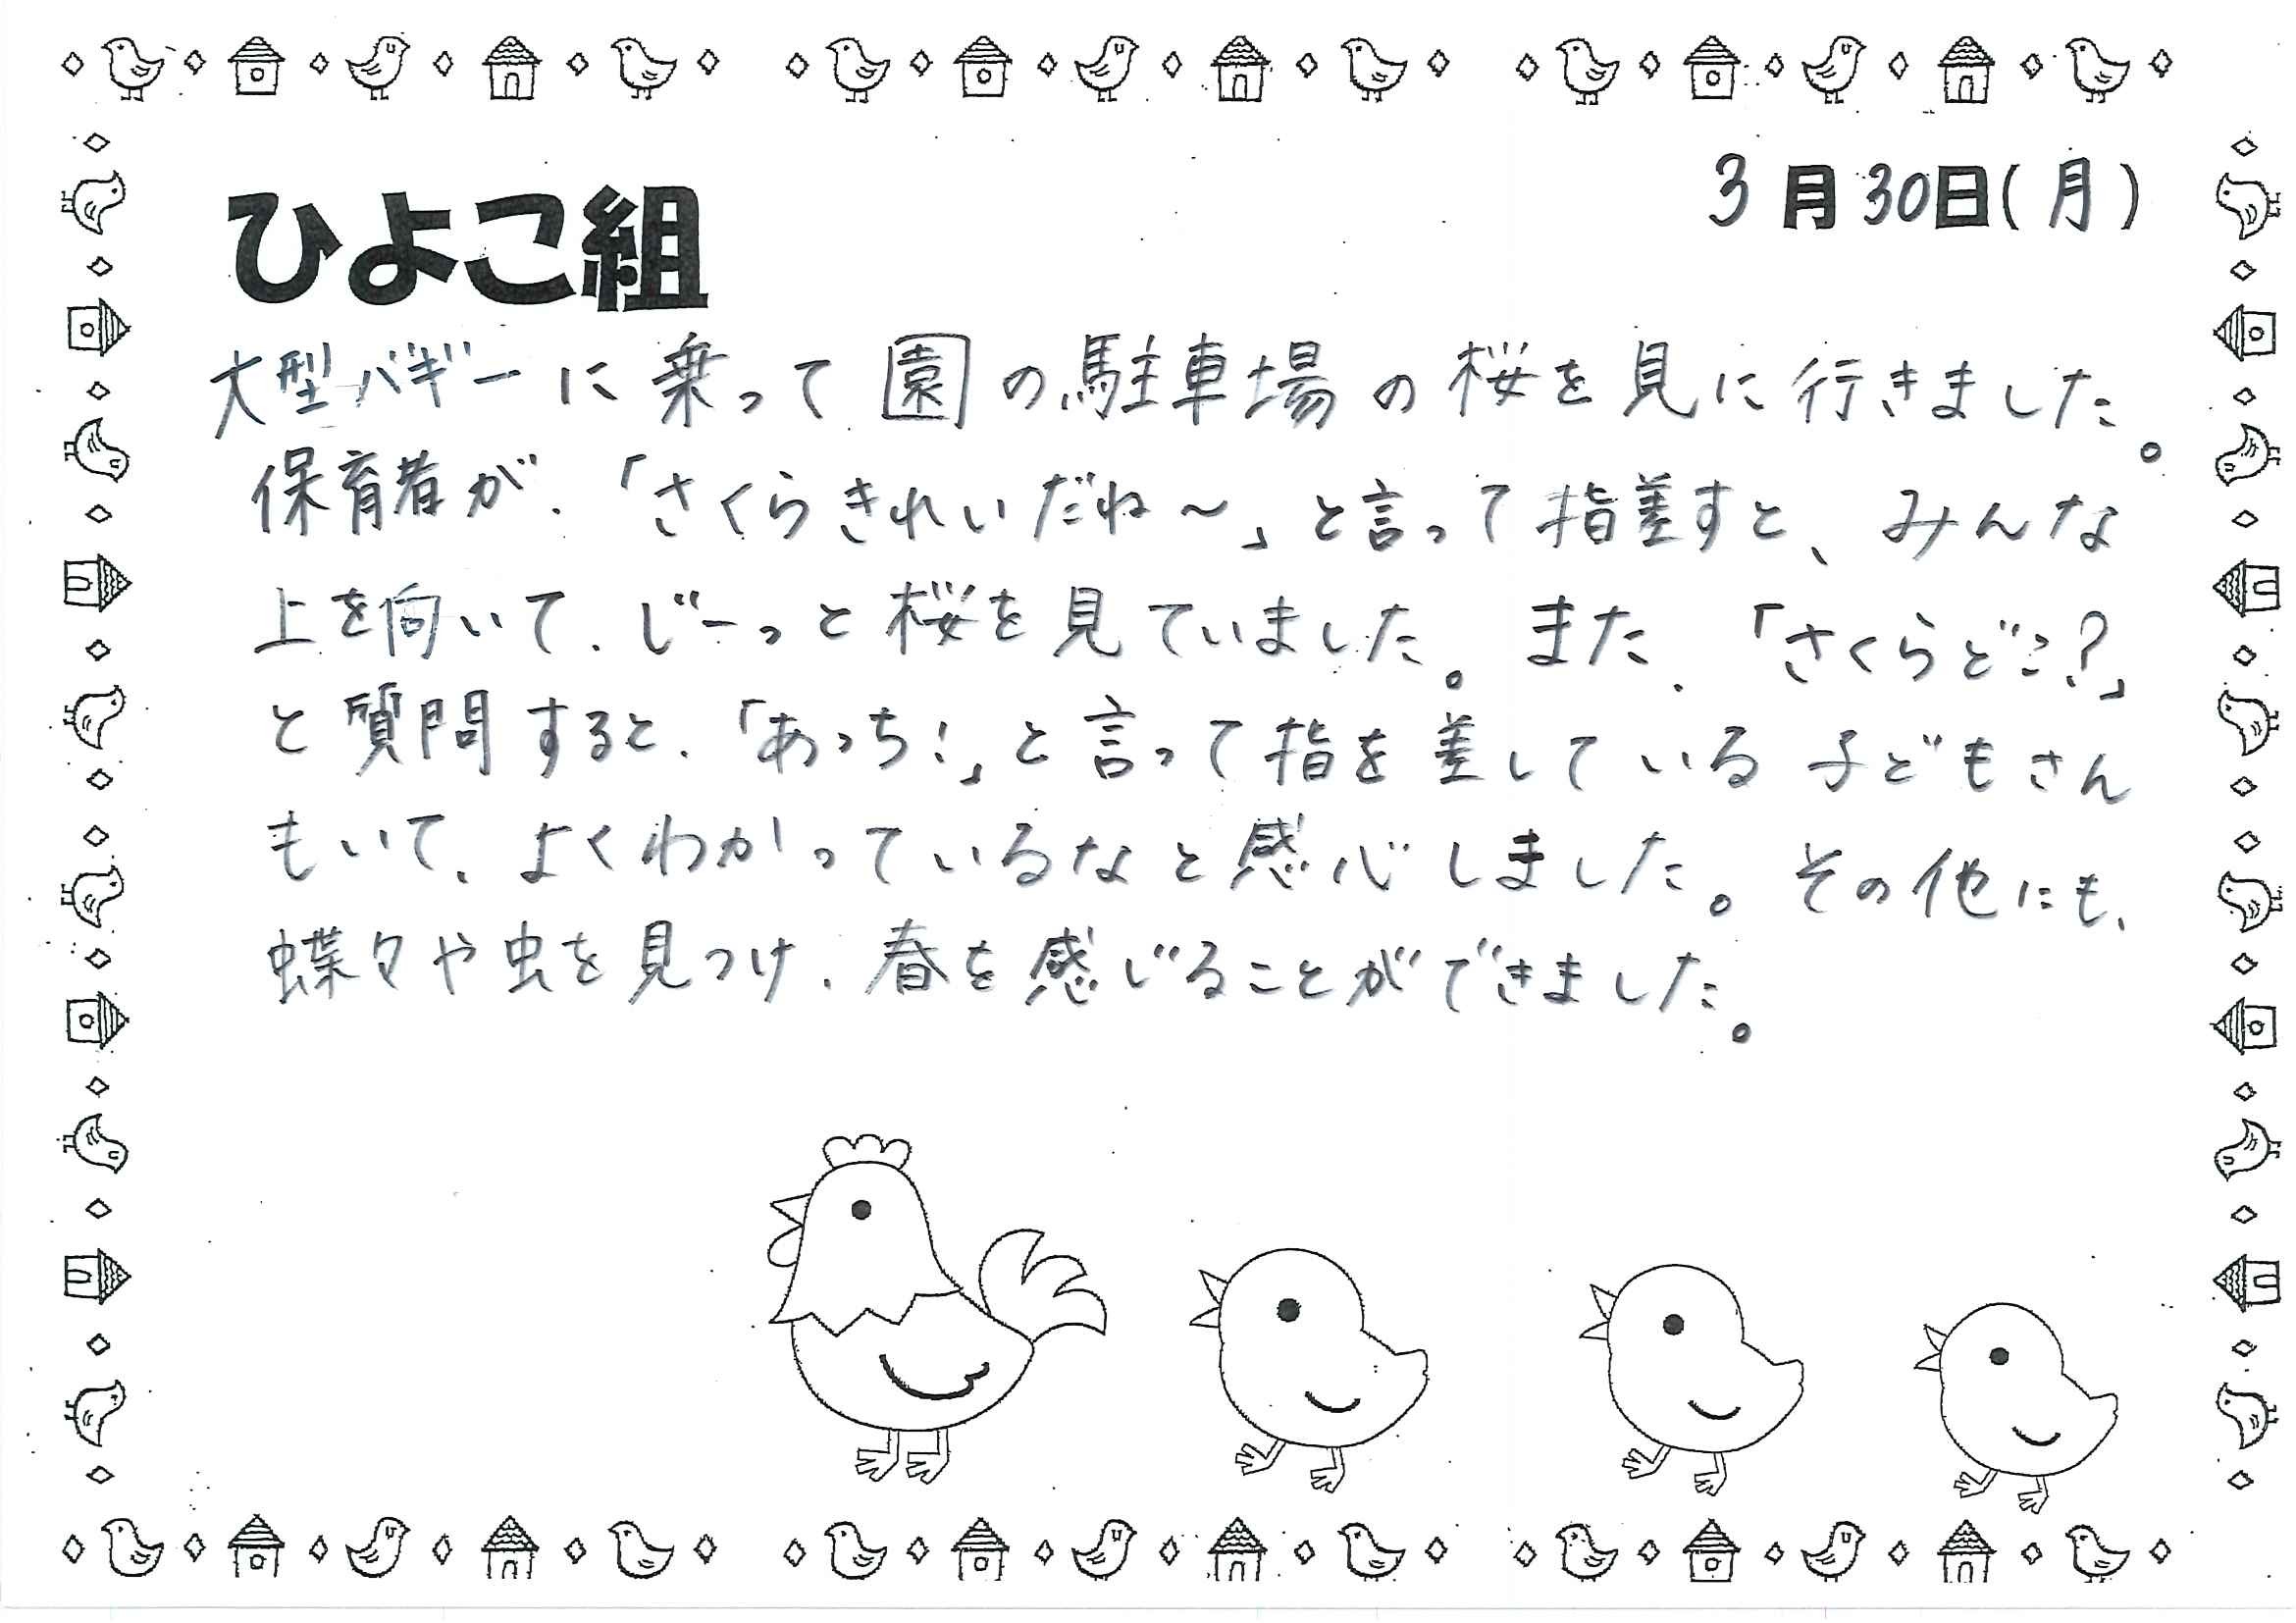 3月30日(月)
ひよこ組
大型バギーに乗って園の駐車場の桜を見に行きました。
保育者が、「さくらきれいだね～」と言って指差すと、みんな
上を向いて、じーっと桜を見ていました。また、「さくらどこ?」
と質問すると、「あっち!」と言って指を差している子どもさん
もいて、よくわかっているなと感心しました。その他にも、
蝶々や虫を見つけ、春を感じることができました。